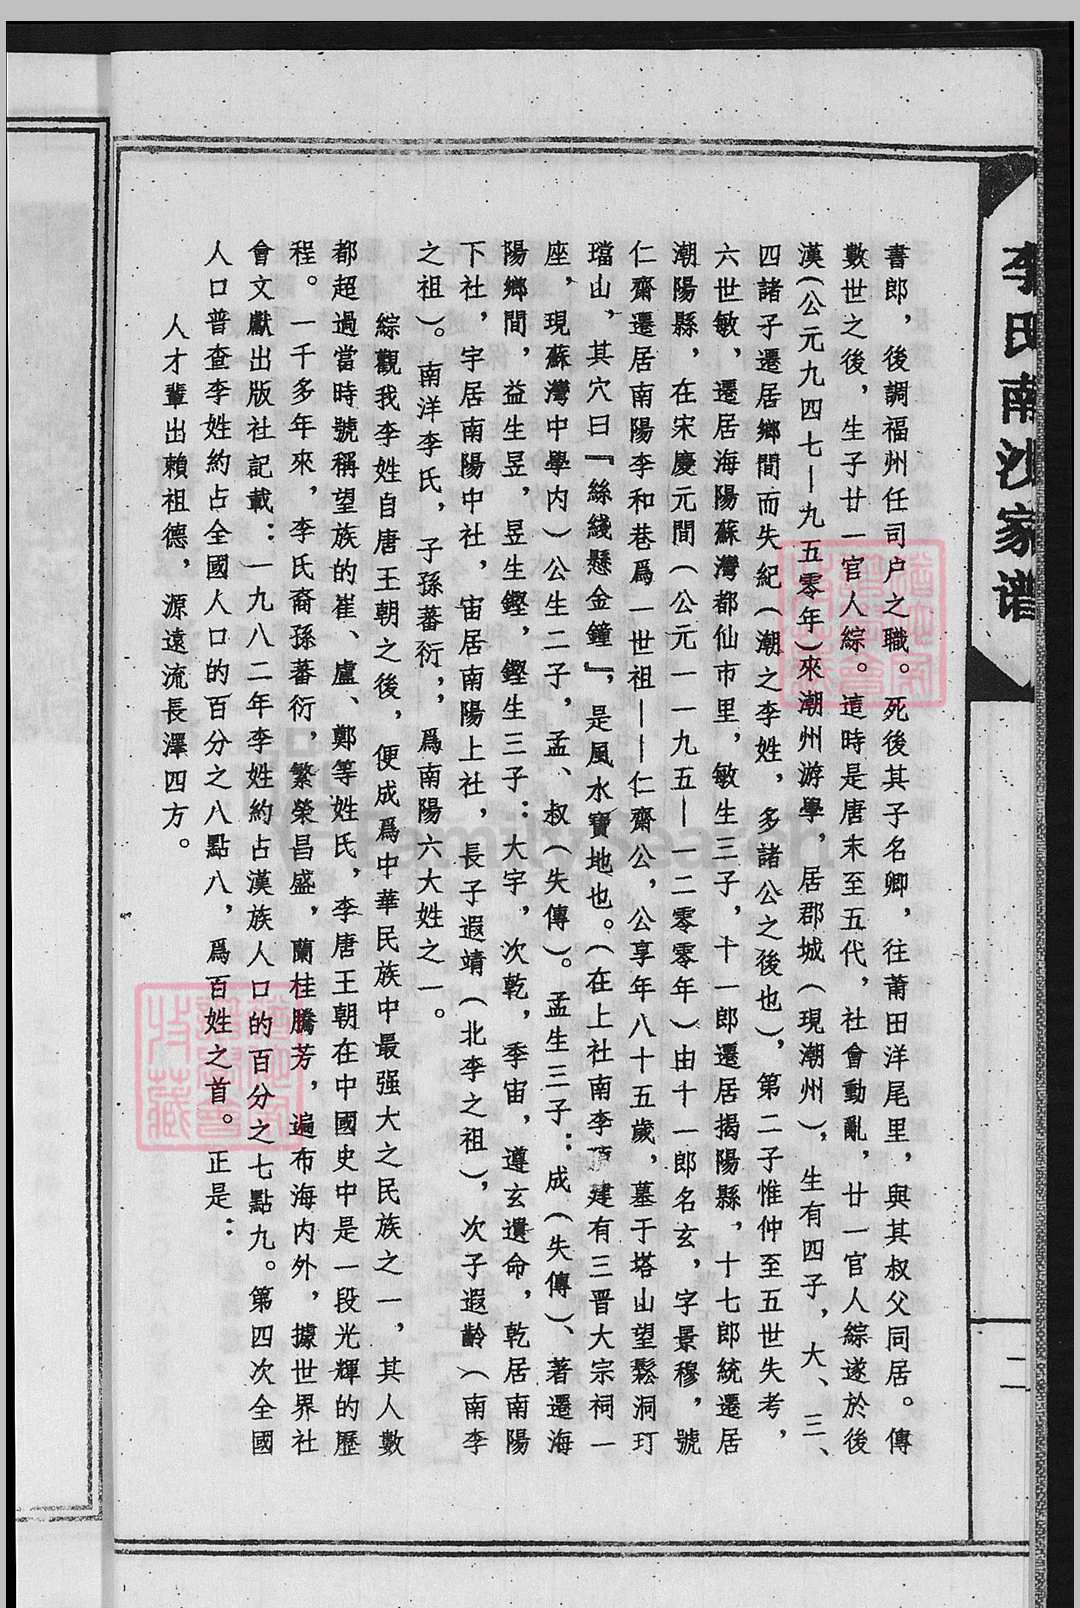 李氏南沙家谱
二
書郎，後調福州任司户之職。死後其子名卿，往莆田洋尾里，與其叔父同居。傳
數世之後，生子廿一官人綜。這時是唐末至五代，社會動亂，廿一官人綜遂於後
漢(公元九四七—九五零年)來潮州游學，居郡城(現潮州)，生有四子，大、三、
四諸子遷居鄉間而失紀(潮之李姓，多諸公之後也)，第二子惟仲至五世失考，
六世敏，遷居海陽蘇灣都仙市里，敏生三子，十一郎遷居揭陽縣，十七郎統遷居
潮陽縣，在宋慶元間(公元一一九五—一二零零年)由十一郎名玄，字景穆，號
仁齋遷居南陽李和巷爲一世祖——仁齋公，公享年八十五歲，墓于塔山望鬆洞玎
璫山，其穴曰『絲綫懸金鐘』，是風水寶地也。(在上社南李頂建有三晋大宗祠一
座，現蘇灣中學内)公生二子，孟、叔(失傳)。孟生三子：成(失傳)、著遷海
陽鄉間，益生昱，昱生鏗，鏗生三子：大宇，次乾，季宙，遵玄遺命，乾居南陽
下社，宇居南陽中社，宙居南陽上社，長子遐靖(北李之祖)，次子遐齡(南李
之祖)。南洋李氏，子孫蕃衍，，爲南陽六大姓之一。
綜觀我李姓自唐王朝之後，便成爲中華民族中最强大之民族之一，其人數
都超過當時號稱望族的崔、盧、鄭等姓氏，李唐王朝在中國史中是一段光輝的歷
程。一千多年來，李氏裔孫蕃衍，繁榮昌盛，蘭桂騰芳，遍布海内外，據世界社
會文獻出版社記載：一九八二年李姓約占漢族人口的百分之七點九。第四次全國
人口普查李姓約占全國人口的百分之八點八，爲百姓之首。正是：
人才輩出賴祖德，源遠流長澤四方。
FamilySearch